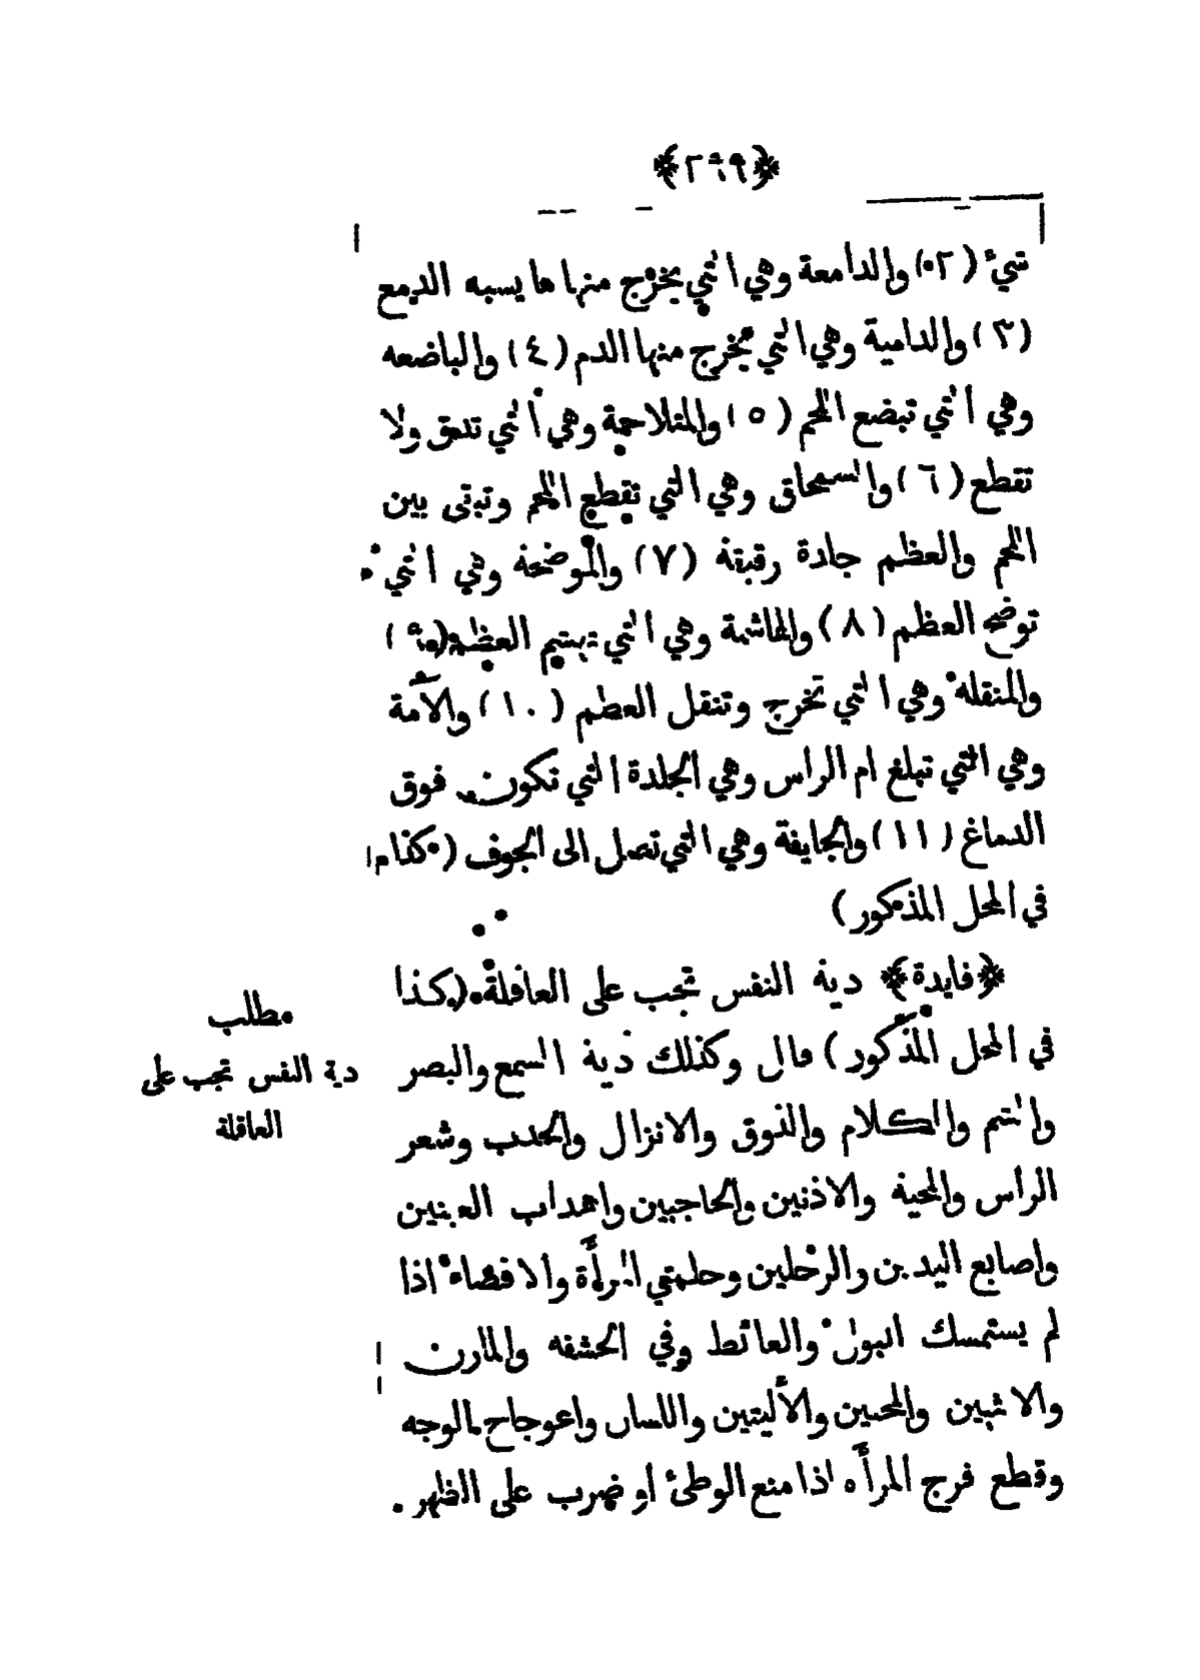 ﴿٢٦٩﴾
شيء (٢) والدامعة وهي التي يخرج منها ما يسبه الدمع
(٣) والدامية وهي التي يخرج منها الدم (٤) والباضعه
وهي التي تبضع اللحم (٥) والمتلاحمة وهي التي تدعق ولا
تقطع (٦) والسمحاق وهي التي تقطع اللحم وتبقى بين
اللحم والعظم جادة رقيقة (٧) والموضحة وهي التي
توضح العظم (٨) والهاشمة وهي التي تهشم العظم (٩)
والمنقله وهي التي تخرج وتنقل العظم (١٠) والآمة
وهي التي تبلغ ام الراس وهي الجلدة التي تكون فوق
الدماغ (١١) والجايفة وهي التي تصل الى الجوف (كذا
في المحل المذكور)
﴿فايدة﴾ دية النفس تجب على العاقلة (كذا
في المحل المذكور) قال وكذلك دية السمع والبصر
والشم والكلام والذوق والانزال والحدب وشعر
الراس واللحية والاذنين والحاجبين واهداب العينين
واصابع اليدين والرجلين وحلمتي المرأة والافضاء اذا
لم يستمسك البول والغائط وفي الحشفه والمارن
والانثيين واللحيين والأليتين واللسان واعوجاج الوجه
وقطع فرج المرأه اذا منع الوطئ او ضرب على الظهر
مطلب
دية النفس تجب على
العاقلة